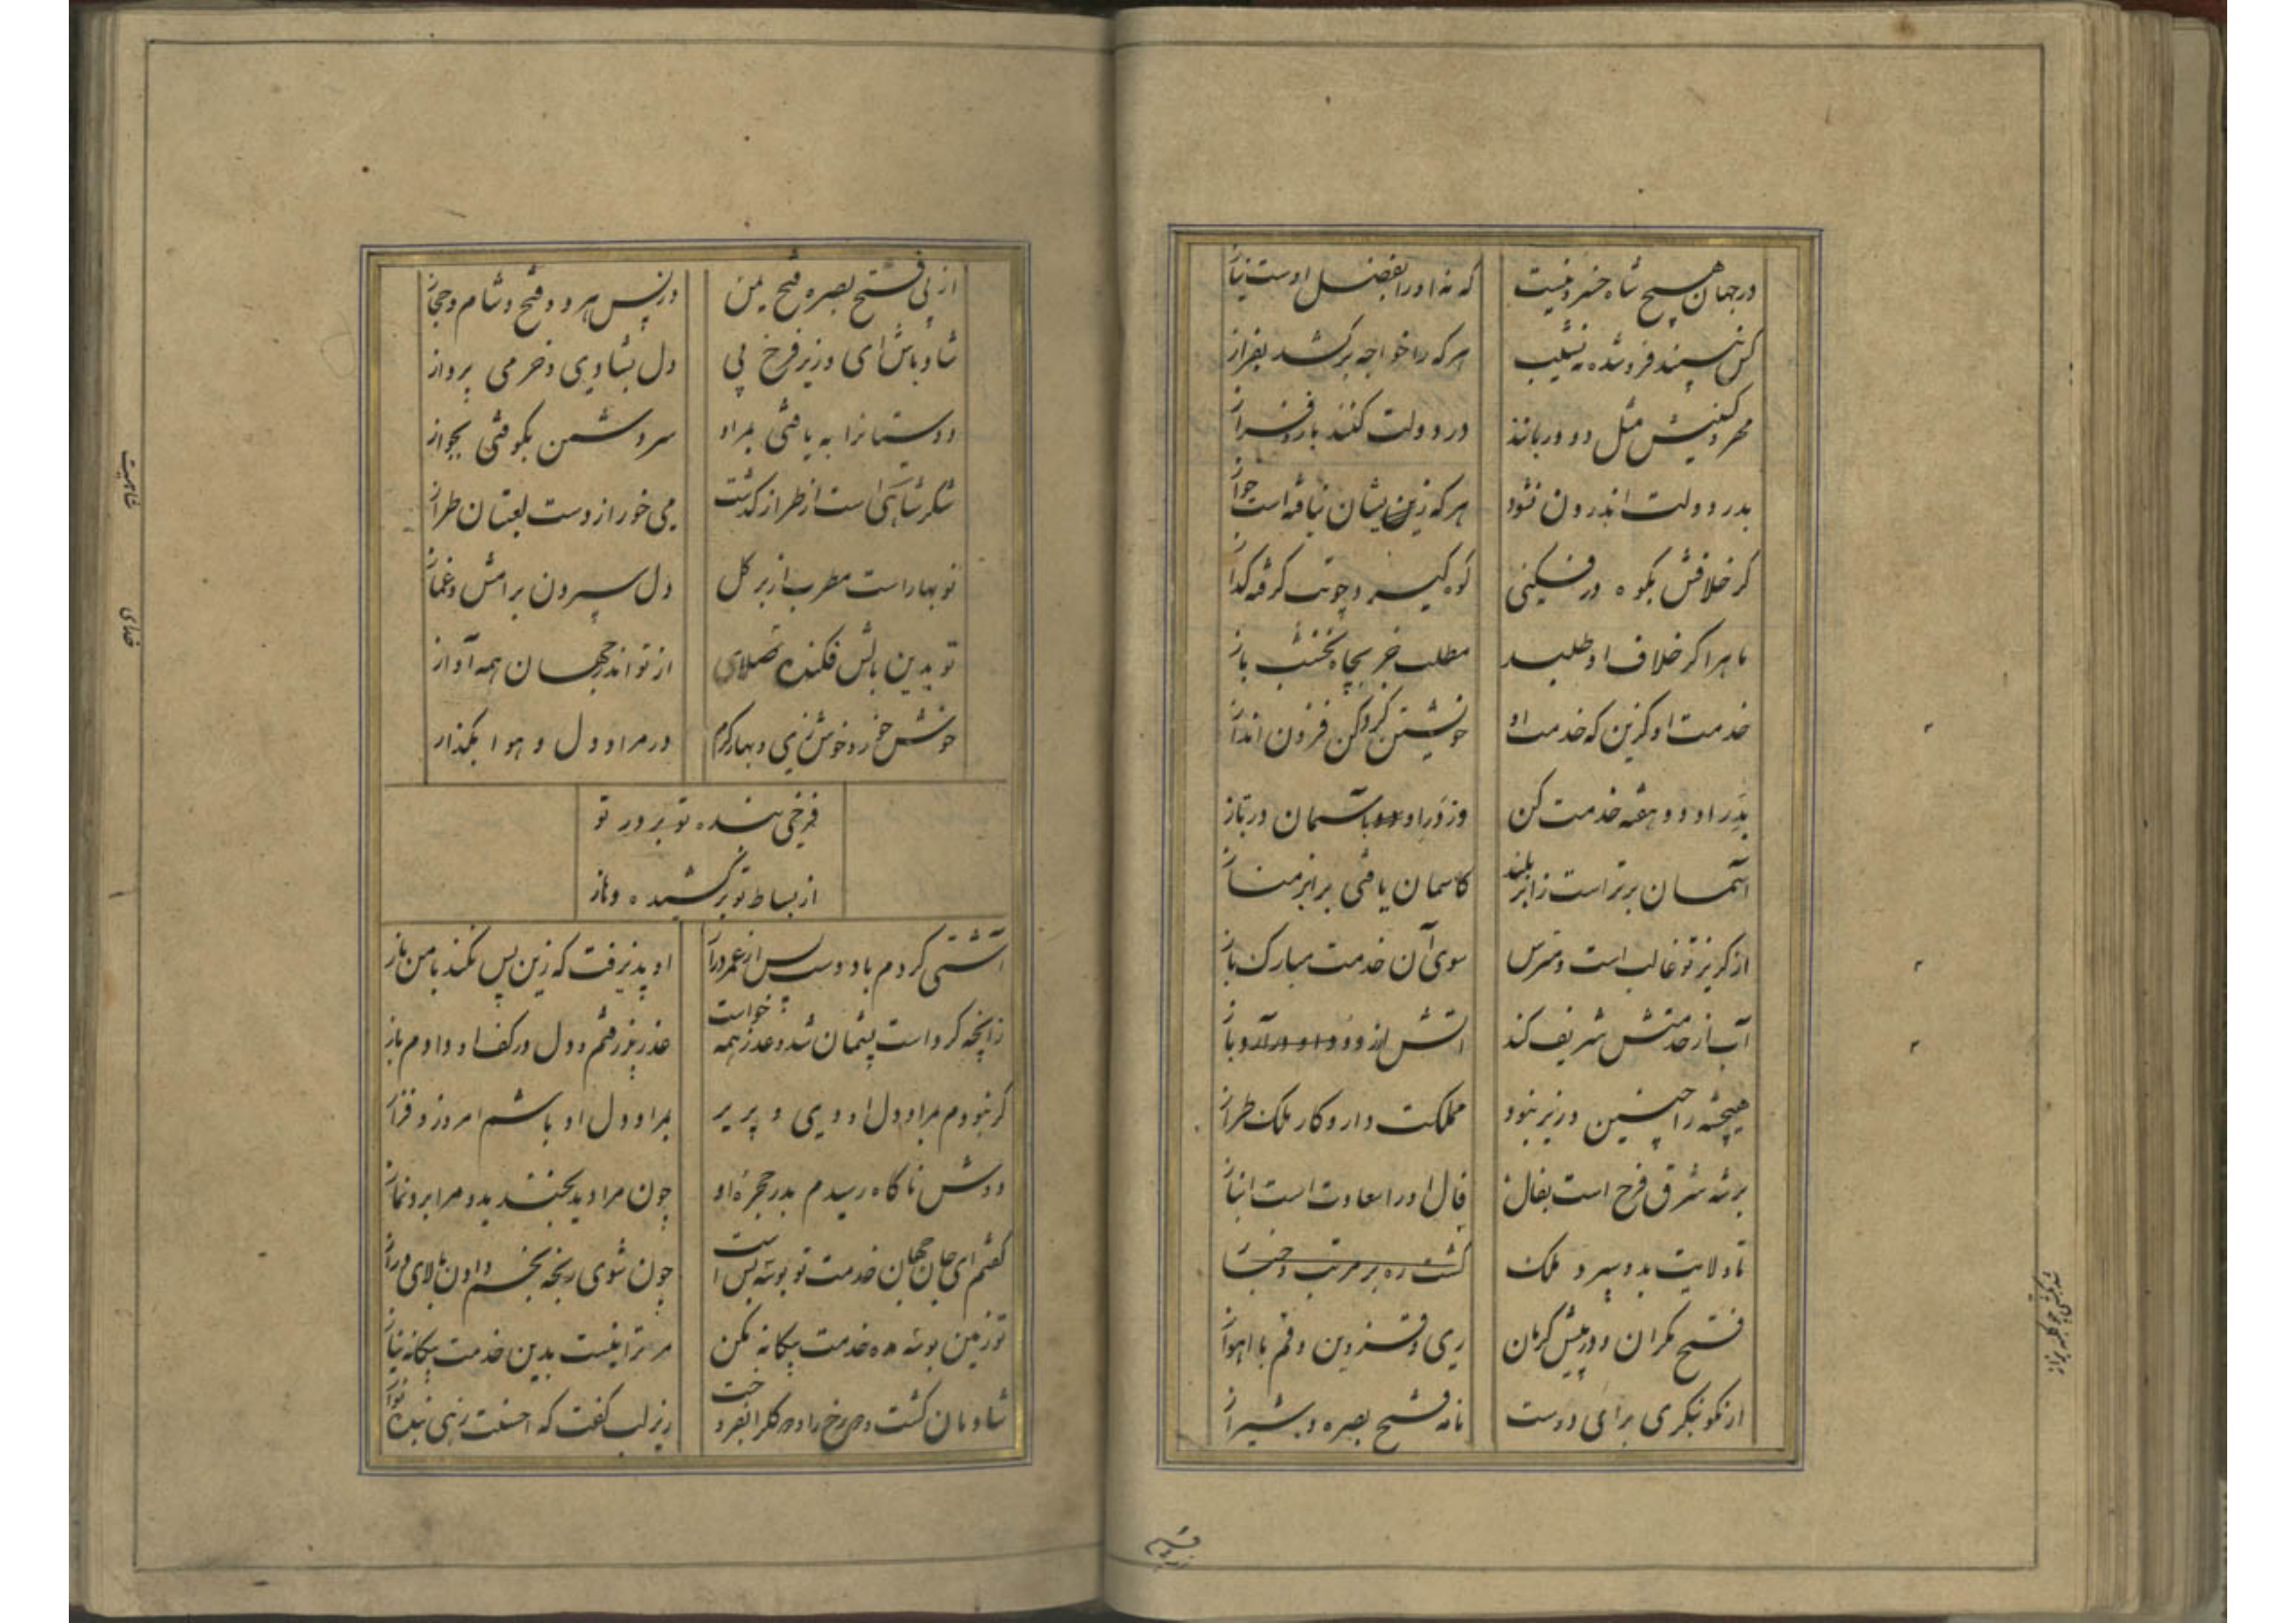 در جهان هیچ شاه خسرو نیست که نه او را بفضل اوست نیاز
کس نبیند فرو شده به نشیب هر که را خواجه برکشد بفراز
مهر و کینش مثل دو دربانند در دولت کنند باز و فراز
بدر دولت اندرون نشود هر که زین شان نیافته است جواز
گر خلافش بکوه در فکنی کوه گیرد چو تب گرفته گداز
ماهرا گر خلاف او طلبید مطلب جز بچاه نخشب باز
خدمت او گزین که خدمت او خویشتن کرد کن فزون انداز
بدر او دو هفته خدمت کن وز در او بآسمان در تاز
آسمان برتر است ز ابر بلند کاسمان یافتی برابر مناز
از گریز تو غالب است و مترس سوی آن خدمت مبارک باز
آب از خدمتش شریف کند آتش از
هیچ شه را چنین وزیر نبود مملکت دار و کار ملک طراز
بر شه شرق فرخ است بفال فال او را سعادت است انباز
تا ولایت بدو سپرد ملک گشت
فتح مکران و در پیش کرمان ری و قزوین و قم با اهواز
ار نکو بنگری برای درست نامه فتح بصره و شیراز
از پی فتح بصره فتح یمن در پس هر دو فتح و شام و حجاز
شاد باش ای وزیر فرخ پی دل بشادی و خرمی پرداز
دوستانرا به یافتی بمراد سر دشمن بکوفتی بجواز
از طراز گذشت می خور از دست لعبتان طراز
نوبهار است مطرب از بر گل دل سپردن برامش و
تو بدین بالش فکنده از تو اندر جهان همه آواز
خوش خور و خوش زی و بهار کرم در مراد دل و هوا بگذار
فرخی بنده تو بر در تو
از بساط تو برکشیده و ناز
آشتی کردم با دوست پس از عمر دراز او پذیرفت که زین پس نکند با من ناز
زانچه کرد است پشیمان شد و عذر همه خواست عذر پذیرفتم و دل در کف او دادم باز
گر نبودم بمراد دل او دی و پریر بمراد دل او باشم امروز و فراز
دوش ناگاه رسیدم بدر حجره او چون مرا دید بخندید و مرا برد نماز
گفتم ای جان جهان خدمت تو بوسه بس است چون شوی رنجه بخم دادن بالای دراز
تو زمین بوسه مده خدمت بیگانه مکن مر ترا نیست بدین خدمت بیگانه نیاز
شادمان گشت و رخ را بفروخت زیر لب گفت که احسنت زهی بنده نواز